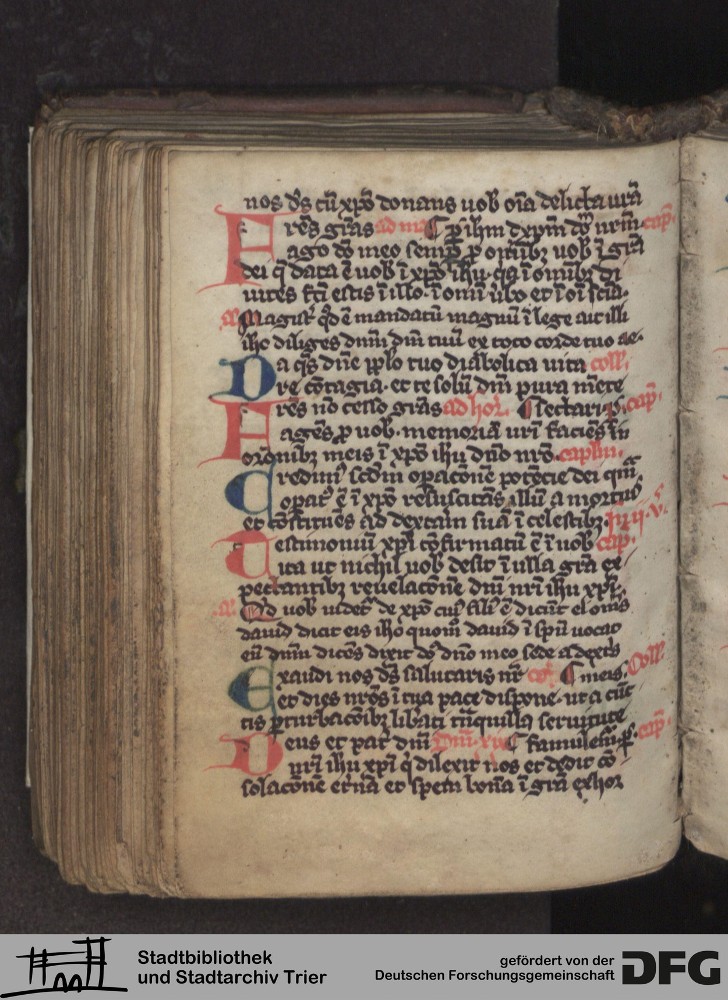 nos ds cū xpō donans uob oīa delicta urā
Frēs grās ad ma ¶ p ihm xpm dn̄m nrm cap.
ago dō meo semp p omībz uob ī grā
dei q data ē uob ī xpō ihu. qa ī omībz di
uites fcī estis ī illo. ī omī ūbo et ī oī scīa.
Magist qd ē mandatū magnū ī lege ait illi
ihc diliges dnm dm tuū ex toto corde tuo ae.
Da qs dne pplo tuo diabolica uita coll.
re cōtagia. et te solū dm pura mēte
Frēs nō cesso grās ad hor. cap.
agēs p uob. memoriā urī faciēs ī
orōnibz meis ī xpō ihu dno nrō. caplm.
Credim scdm opacōne potēcie dei quā
opat ē ī xpō resuscitās illū a mortuis
et cōstituēs ad dextām suā ī celestibz.
Testimoniū xpi cōfirmatū ē ī uob cap.
ita ut nichil uob desit ī ulla grā ex
pectantibz reuelacōne dni nrī ihu xpi.
Qd uob uidet de xpō cui fili ē dicūt ei oms
dauid dicit eis ihc quom dauid ī spū uocat
eū dnm dicēs dixit ds dno meo sede a dextis
Exaudi nos ds salutaris nr ¶ meis. Coll.
et dies nrōs ī tua pace dispone. ut a cūc
tis pturbacōibz libati tnquilla seruitute
Deus et pat dni famulem. cap.
nrī ihu xpi q dilexit nos et dedit cō
solacōne etnā et spem bonā ī grā exhor
Stadtbibliothek
und Stadtarchiv Trier
gefördert von der
Deutschen Forschungsgemeinschaft
DFG